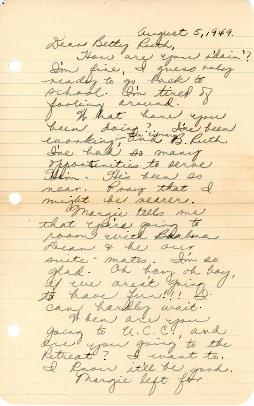 August 5, 1949.
Dear Betty Ruth,
How are you a'doin'?
I'm fine, I guess, only
ready to go back to
school. I'm tired of
fooling around.
What have you
been doing? I've been
working, and B. Ruth
I've had so many
opportunities to serve
Him. He's been so
near. Pray that I
might be nearer.
Margie tells me
that you're going to
room with
Dean & be our
suite-mates. I'm so
glad. Oh boy oh boy,
if we aren't going
to have fun!!! I
can hardly wait.
When are you
going to U.C.C., and
are you going to the
Retreat? I want to.
I know it'll be good.
Margie left for